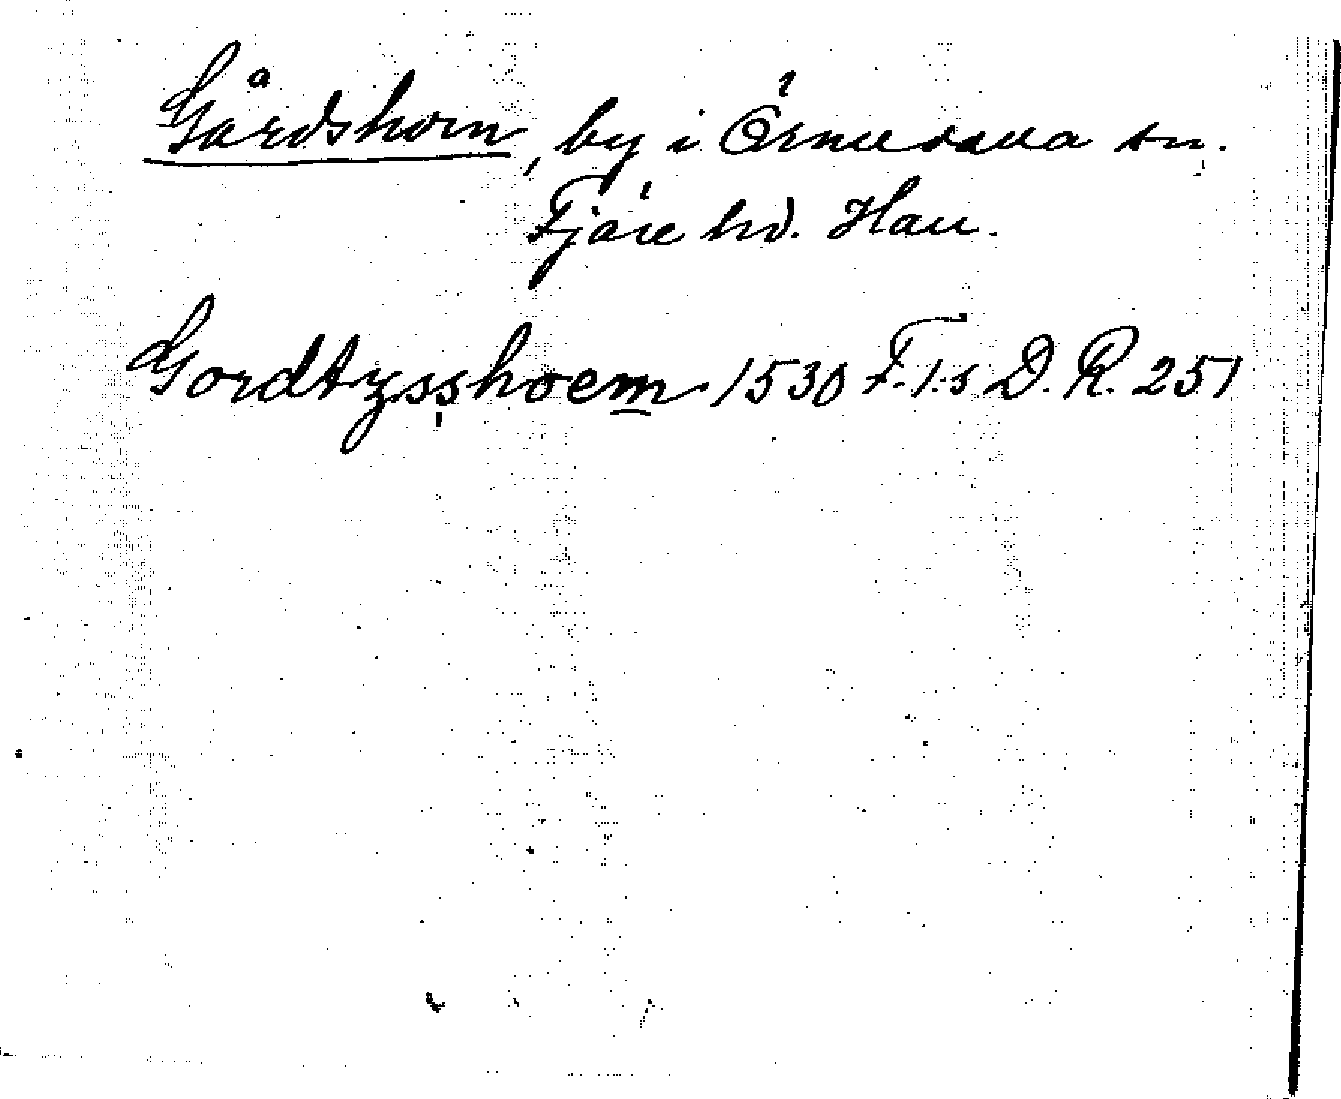 Gårdshom, by i Örnevalla sn.
Fjäre hd. Hall.
Gordtzsshoem 1530 F. I:s D. R. 251